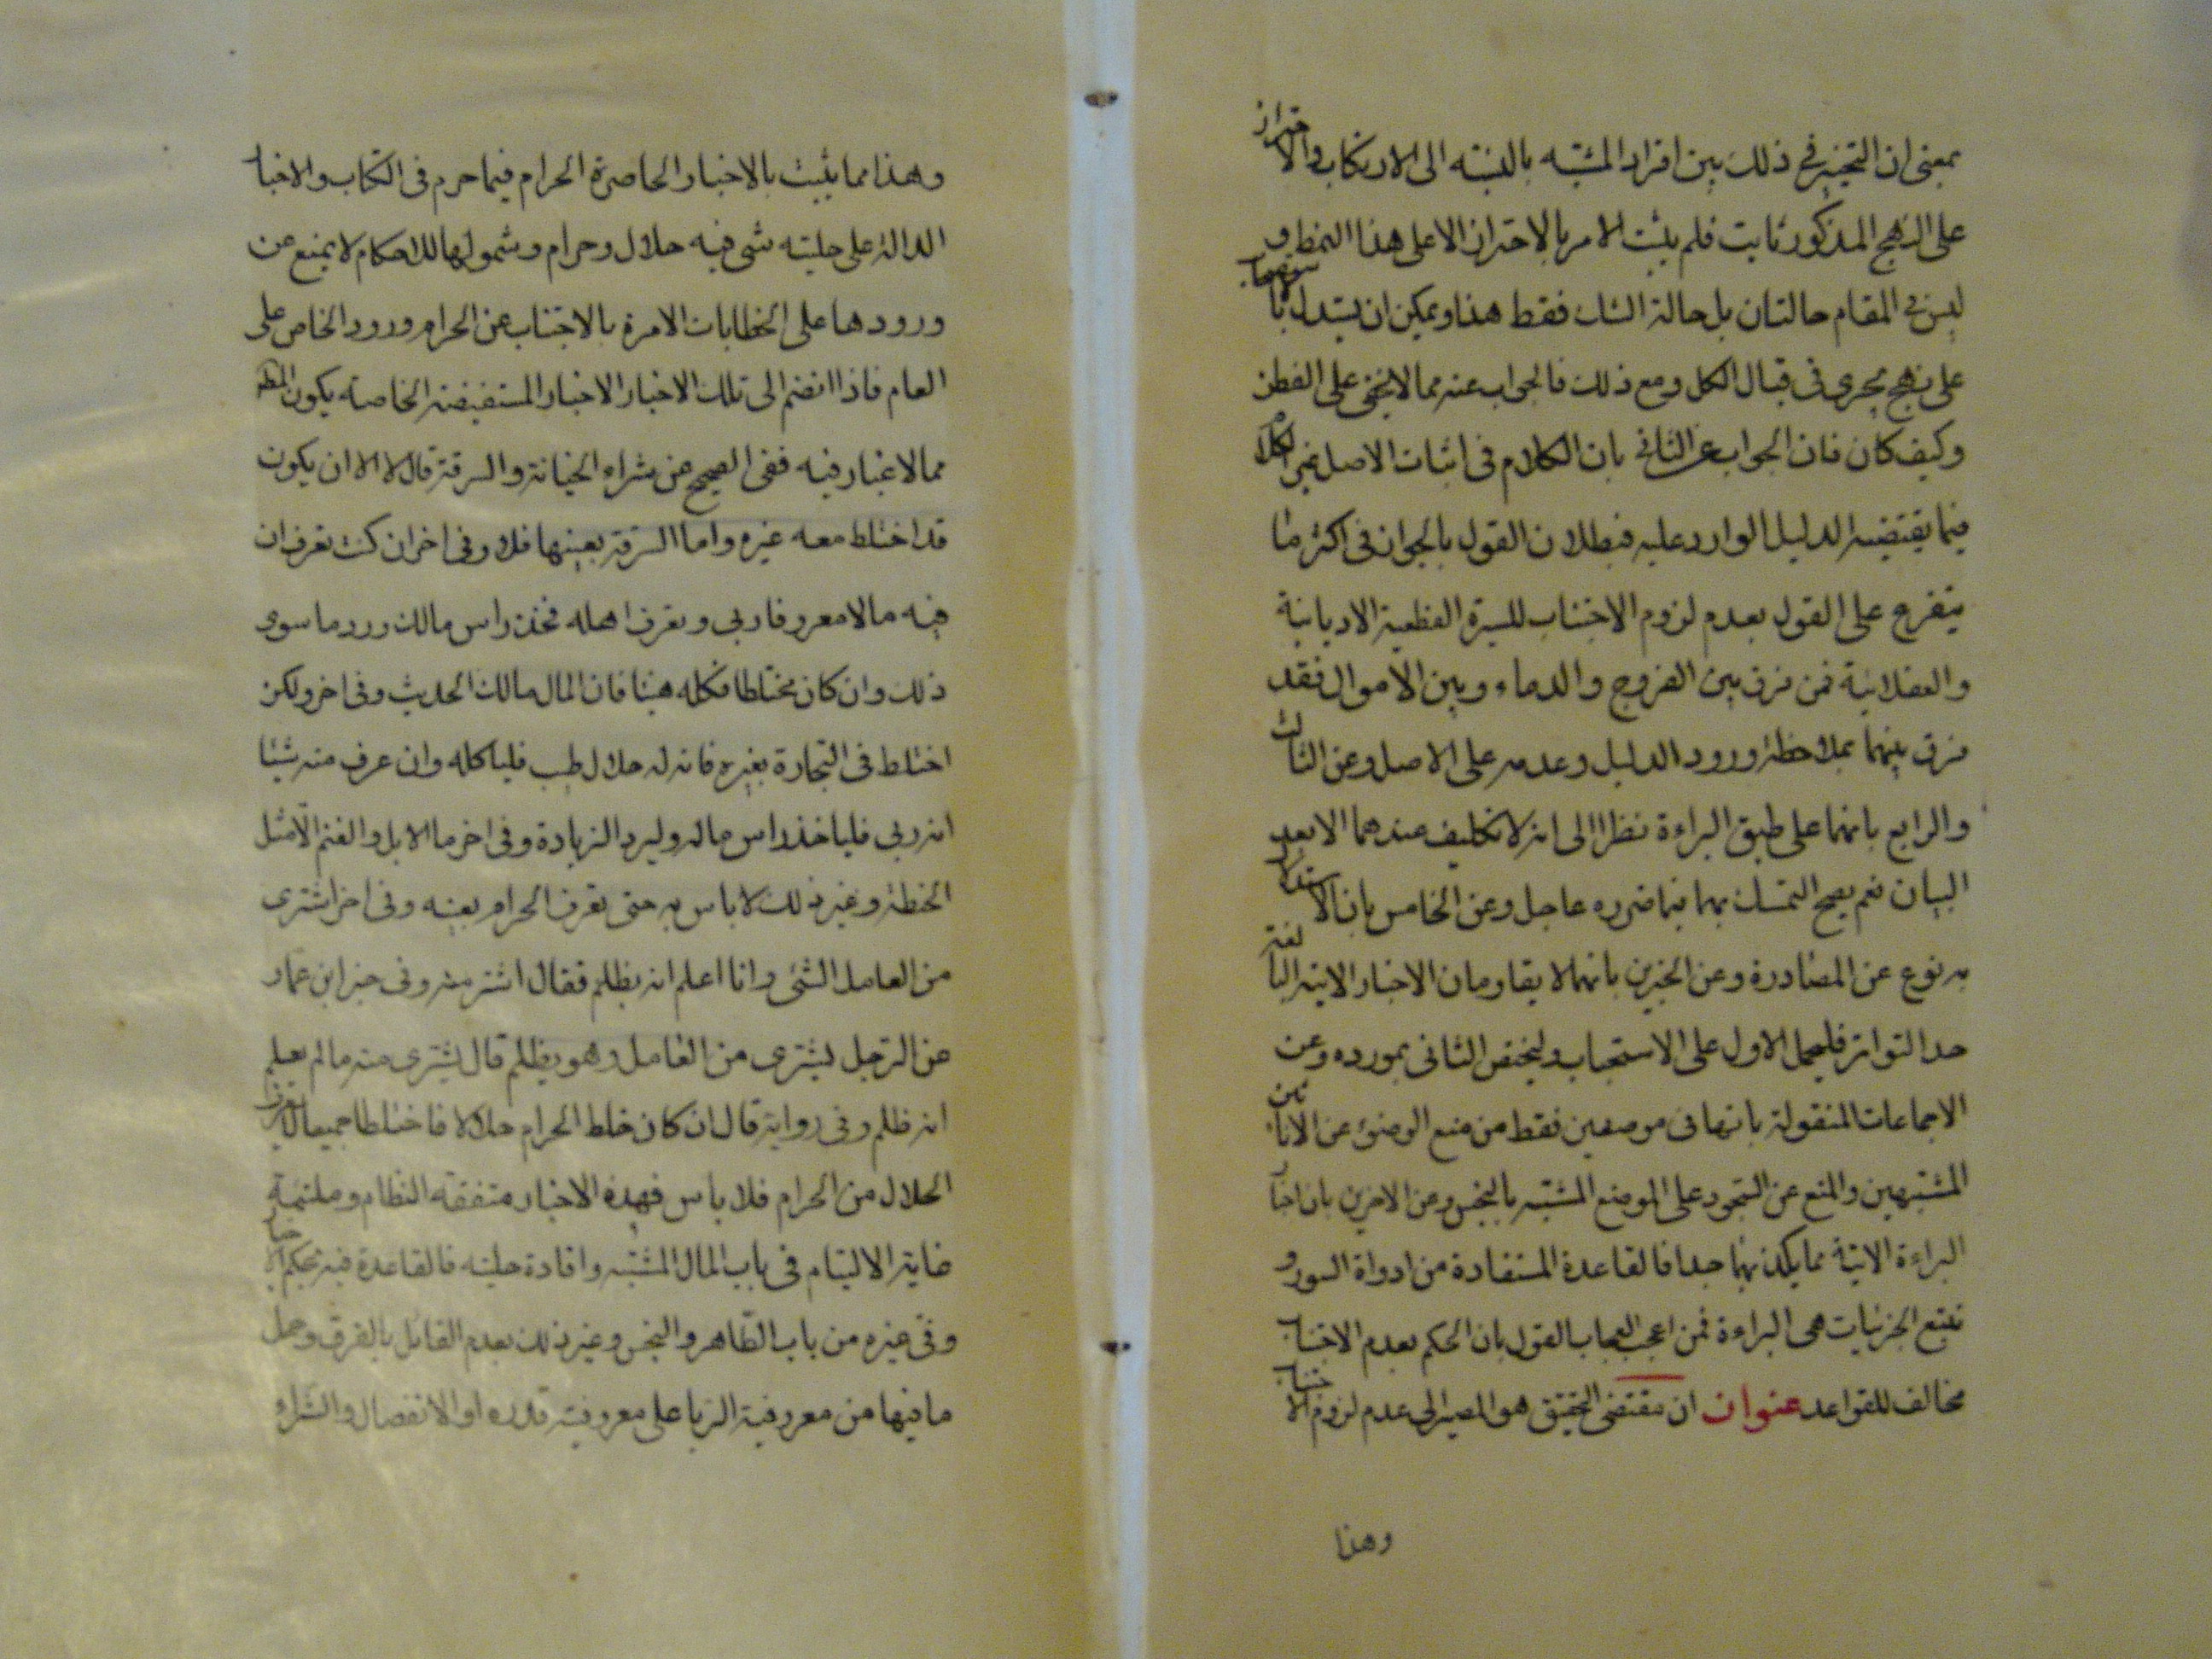 بمعنى ان التخيير في ذلك بين افراد المشتبه بالنسبة الى الارتكاب والاحتراز
على النهج المذكور ثابت فلم يثبت الامر بالاحتراز الا على هذا النمط و
ليس في المقام حالتان بل حالة الشك فقط هذا ويمكن ان يستدل بالاستصحاب
على نهج يجرى فى قبال الكل ومع ذلك فالجواب عنه مما لا يخفى على الفطن
وكيف كان فان الجواب عن الثاني بان الكلام فى اثبات الاصل غير الكلام
فيما يقتضيه الدليل الوارد عليه فبطلان القول بالجواز فى اكثر ما
يتفرع على القول بعدم لزوم الاجتناب للسيرة القطعية الاديانية
والعقلائية فمن فرق بين الفروج والدماء وبين الاموال فقد
فرق بينهما بملاحظة ورود الدليل وعدمه على الاصل وعن الثالث
والرابع بانهما على طبق البراءة نظرا الى انه لا تكليف عندهما الا بعد
البيان نعم يصح التمسك بهما فيما ضرره عاجل وعن الخامس بان الاستدلال
به نوع عن المصادرة وعن الخبرين بانهما لا يقاومان الاخبار الاتية البالغة
حد التواتر فليحمل الاول على الاستحباب وليختص الثانى بمورده وعن
الاجماعات المنقولة بانها فى موضعين فقط من منع الوضوء عن الانائين
المشتبهين والمنع عن السجود على الموضع المشتبه بالنجس وعن الاخرين بان اخبار
البراءة الاتية مما يكذبهما جدا فالقاعدة المستفادة من ادواة السور و
تتبع الجزئيات هى البراءة فمن اعجب العجاب القول بان الحكم بعدم الاجتناب
مخالف للقواعد عنوان ان مقتضى التحقيق هو المصير الى عدم لزوم الاجتناب
وهذا
وهذا مما يثبت بالاخبار الحاصرة الحرام فيما حرم فى الكتاب والاخبار
الدالة على حلية شى فيه حلال وحرام وشمولها للاحكام لا يمنع عن
ورودها على الخطابات الامرة بالاجتناب عن الحرام ورود الخاص على
العام فاذا انضم الى تلك الاخبار الاخبار المستفيضة الخاصة يكون المط
مما لا غبار فيه ففى الصحيح عن شراء الخيانة والسرقة قال لا الا ان يكون
قد اختلط معه غيره واما السرقة بعينها فلا وفى اخر ان كنت تعرف ان
فيه مالا معروفا ربى وتعرف اهله فخذ راس مالك ورد ما سوى
ذلك وان كان مختلطا فكله هنيئا فان المال مالك الحديث وفى اخر ولكن
اختلط فى التجارة بغيره فانه له حلال طيب فلياكله وان عرف منه شيئا
انه ربى فلياخذ راس ماله وليرد الزيادة وفى اخر ما الابل والغنم الا مثل
الحنطة وغير ذلك لا باس به حتى تعرف الحرام بعينه وفى اخر اشترى
من العامل الشئ وانا اعلم انه يظلم فقال اشتر منه وفى خبر ابن عمار
عن الرجل يشترى من العامل وهو يظلم قال يشترى منه ما لم يعلم
انه ظلم وفى رواية قال ان كان خلط الحرام حلالا فاختلطا جميعا لا يعرف
الحلال من الحرام فلا باس فهذه الاخبار متفقة النظام وملتئمة
غاية الالتيام فى باب المال المشتبه وافادة حليته فالقاعدة فيه بحكم الاخبار
وفى غيره من باب الطاهر والنجس وغير ذلك بعدم القائل بالفرق وحمل
ما فيها من معروفية الربا على معروفية قدره او الانفصال والشراء